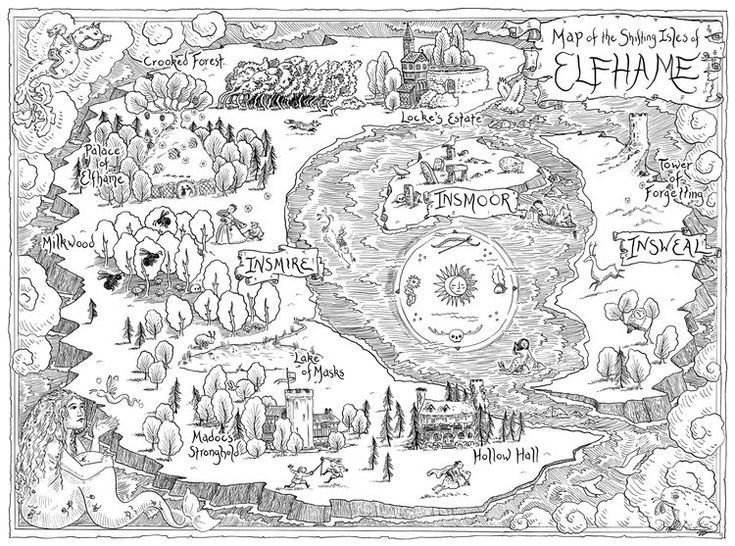 Map of the Shifting Isles of
ELFHAME
Crooked Forest
Locke's Estate
Palace
of
Elfhame
Tower
of
Forgetting
INSMOOR
Milkwood
INSMIRE
INSWEAL
Lake
of Masks
Madoc's
Stronghold
Hollow Hall